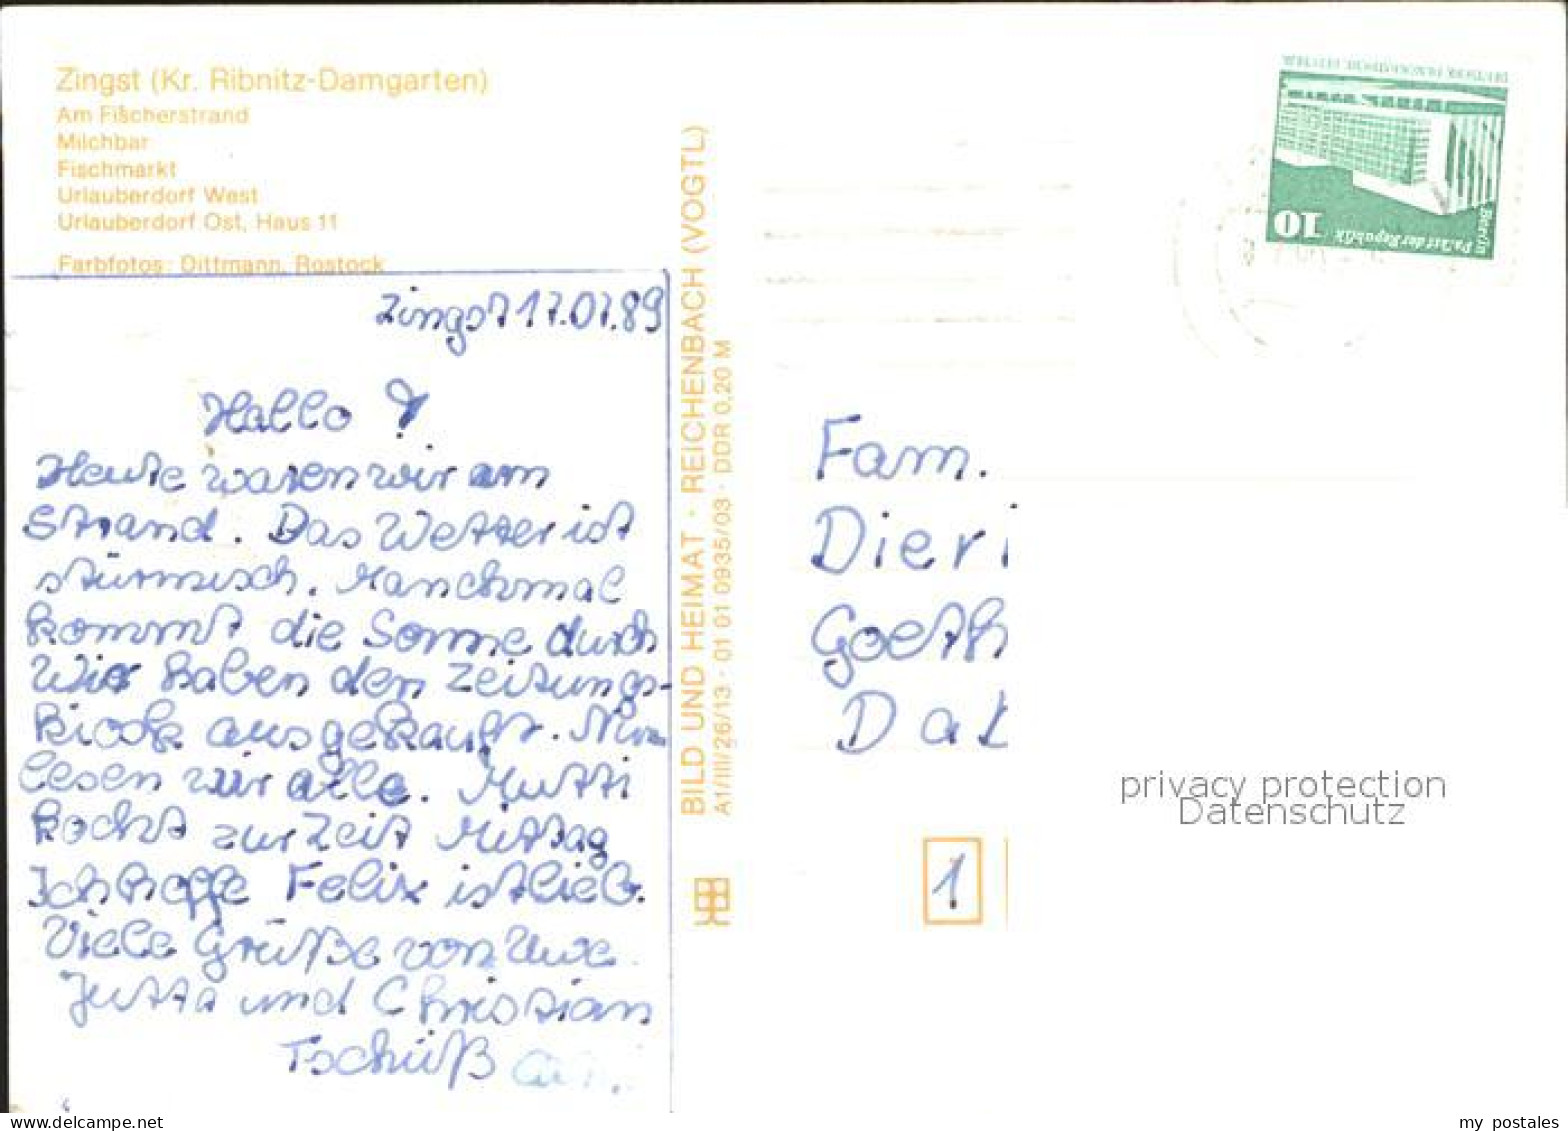 Zingst (Kr. Ribnitz-Damgarten)
Am Fischerstrand
Milchbar
Fischmarkt
Urlauberdorf West
Urlauberdorf Ost, Haus 11
Farbfotos: Dittmann, Rostock
Zingst 17.07.89
Hallo !
Heute waren wir am
Strand. Das Wetter ist
stürmisch. Manchmal
kommt die Sonne durch
Wir haben den Zeitungs-
kiosk ausgekauft. Nun
lesen wir alle. Mutti
kocht zur Zeit Mittag
Ich hoffe Felix ist lieb.
Viele Grüße von Uwe
Jutta und Christian
Tschüß
BILD UND HEIMAT · REICHENBACH (VOGTL)
A1/III/26/13 · 01 01 0935/03 · DDR 0,20 M
DEUTSCHE DEMOKRATISCHE REPUBLIK
10
Berlin
Palast der Republik
Fam.
Dieri
Goeth
Da
1
privacy protection
Datenschutz
my postales